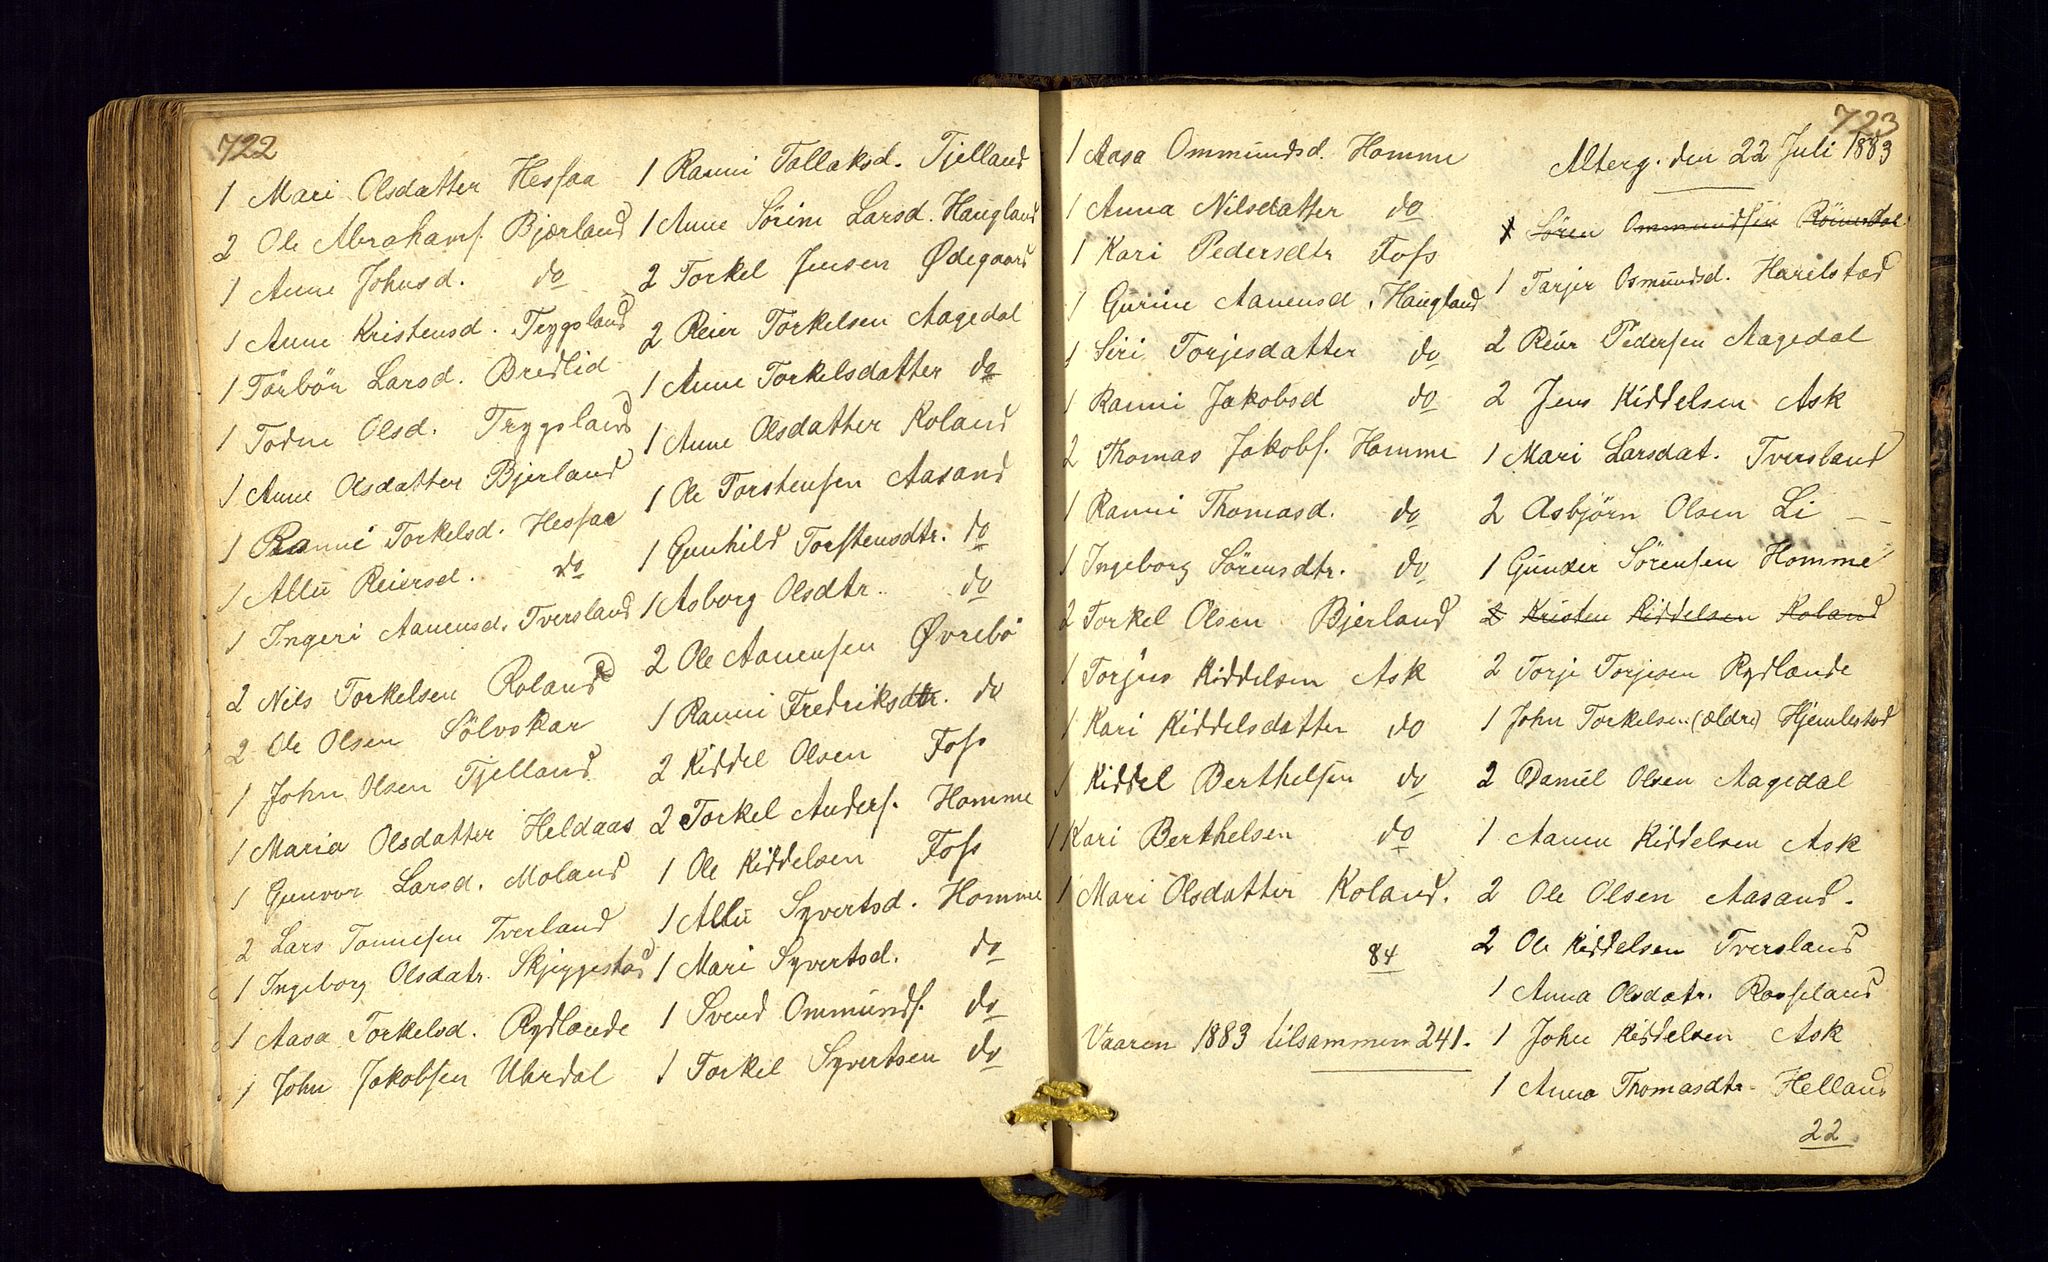 722
1 Mari Olsdatter Hesfaa
2 Ole Abrahams. Bjærland
1 Anne Johnsd. do
1 Anne Kristensd. Trygsland
1 Törbör Larsd. Bredlid
1 Todne Olsd. Trygsland
1 Anne Olsdatter Bjerland
1 Ranni Torkelsd. Hesfaa
1 Allu Reiersd. do
1 Ingeri Aanensd. Tversland
2 Nils Torkelsen Roland
2 Ole Olsen Sölvskar
1 John Olsen Tjelland
1 Maria Olsdatter Heldaas
1 Gunvor Larsd. Moland
2 Lars Tønnesen Tverland
1 Ingeborg Olsdatr. Skjeggestad
1 Aasa Torkelsd. Rydlande
1 John Jakobsen Uhrdal
1 Ranni Tallaksd. Tjelland
1 Anne Sørine Larsd. Haugland
2 Torkel Jensen Ødegaard
2 Reier Torkelsen Aagedal
1 Anne Torkelsdatter do
1 Anne Olsdatter Roland
1 Ole Torstensen Aasand
1 Gunhild Torstensdtr. do
1 Asborg Olsdtr. do
2 Ole Aanensen Øvrebö
1 Ranni Fredriksdtr. do
2 Kiddel Olsen Foss
2 Torkel Anders. Homme
1 Ole Kiddelsen Foss
1 Allu Syvertsd. Homme
1 Mari Syvertsd. do
1 Svend Ommunds. do
1 Torkel Syvertsen do
1 Aasa Ommundsd. Homme
1 Anna Nilsdatter do
1 Kari Pedersdtr Foss
1 Gurine Aanensd. Haugland
1 Siri Torjesdatter do
1 Ranni Jakobsd do
2 Thomas Jakobs. Homme
1 Ranni Thomasd. do
1 Ingeborg Sörensdtr. do
2 Torkel Olsen Bjerland
1 Torjus Kiddelsen Ask
1 Kari Kiddelsdatter do
1 Kiddel Berthelsen do
1 Kari Berthelsen do
1 Mari Olsdatter Roland.
84
Vaaren 1883 tilsammen 241.
723
Alterg. den 22 Juli 1883
1 Sören Ommundsen
1 Tarjer Osmundsd. Harelstad
2 Reier Pedersen Aagedal
2 Jens Kiddelsen Ask
1 Mari Larsdat. Tversland
2 Asbjörn Olsen Li
1 Gunder Sörensen Homme
2 Kristen Kiddelsen Roland
2 Torje Torjesen Rydlande
1 John Torkelsen (ældre) Hjemlestad
2 Daniel Olsen Aagedal
1 Aanen Kiddelsen Ask
2 Ole Olsen Aasand.
2 Ole Kiddelsen Tversland
1 Anna Olsdatr. Rosseland
1 John Kiddelsen Ask
1 Anna Thomasdtr. Helland
22